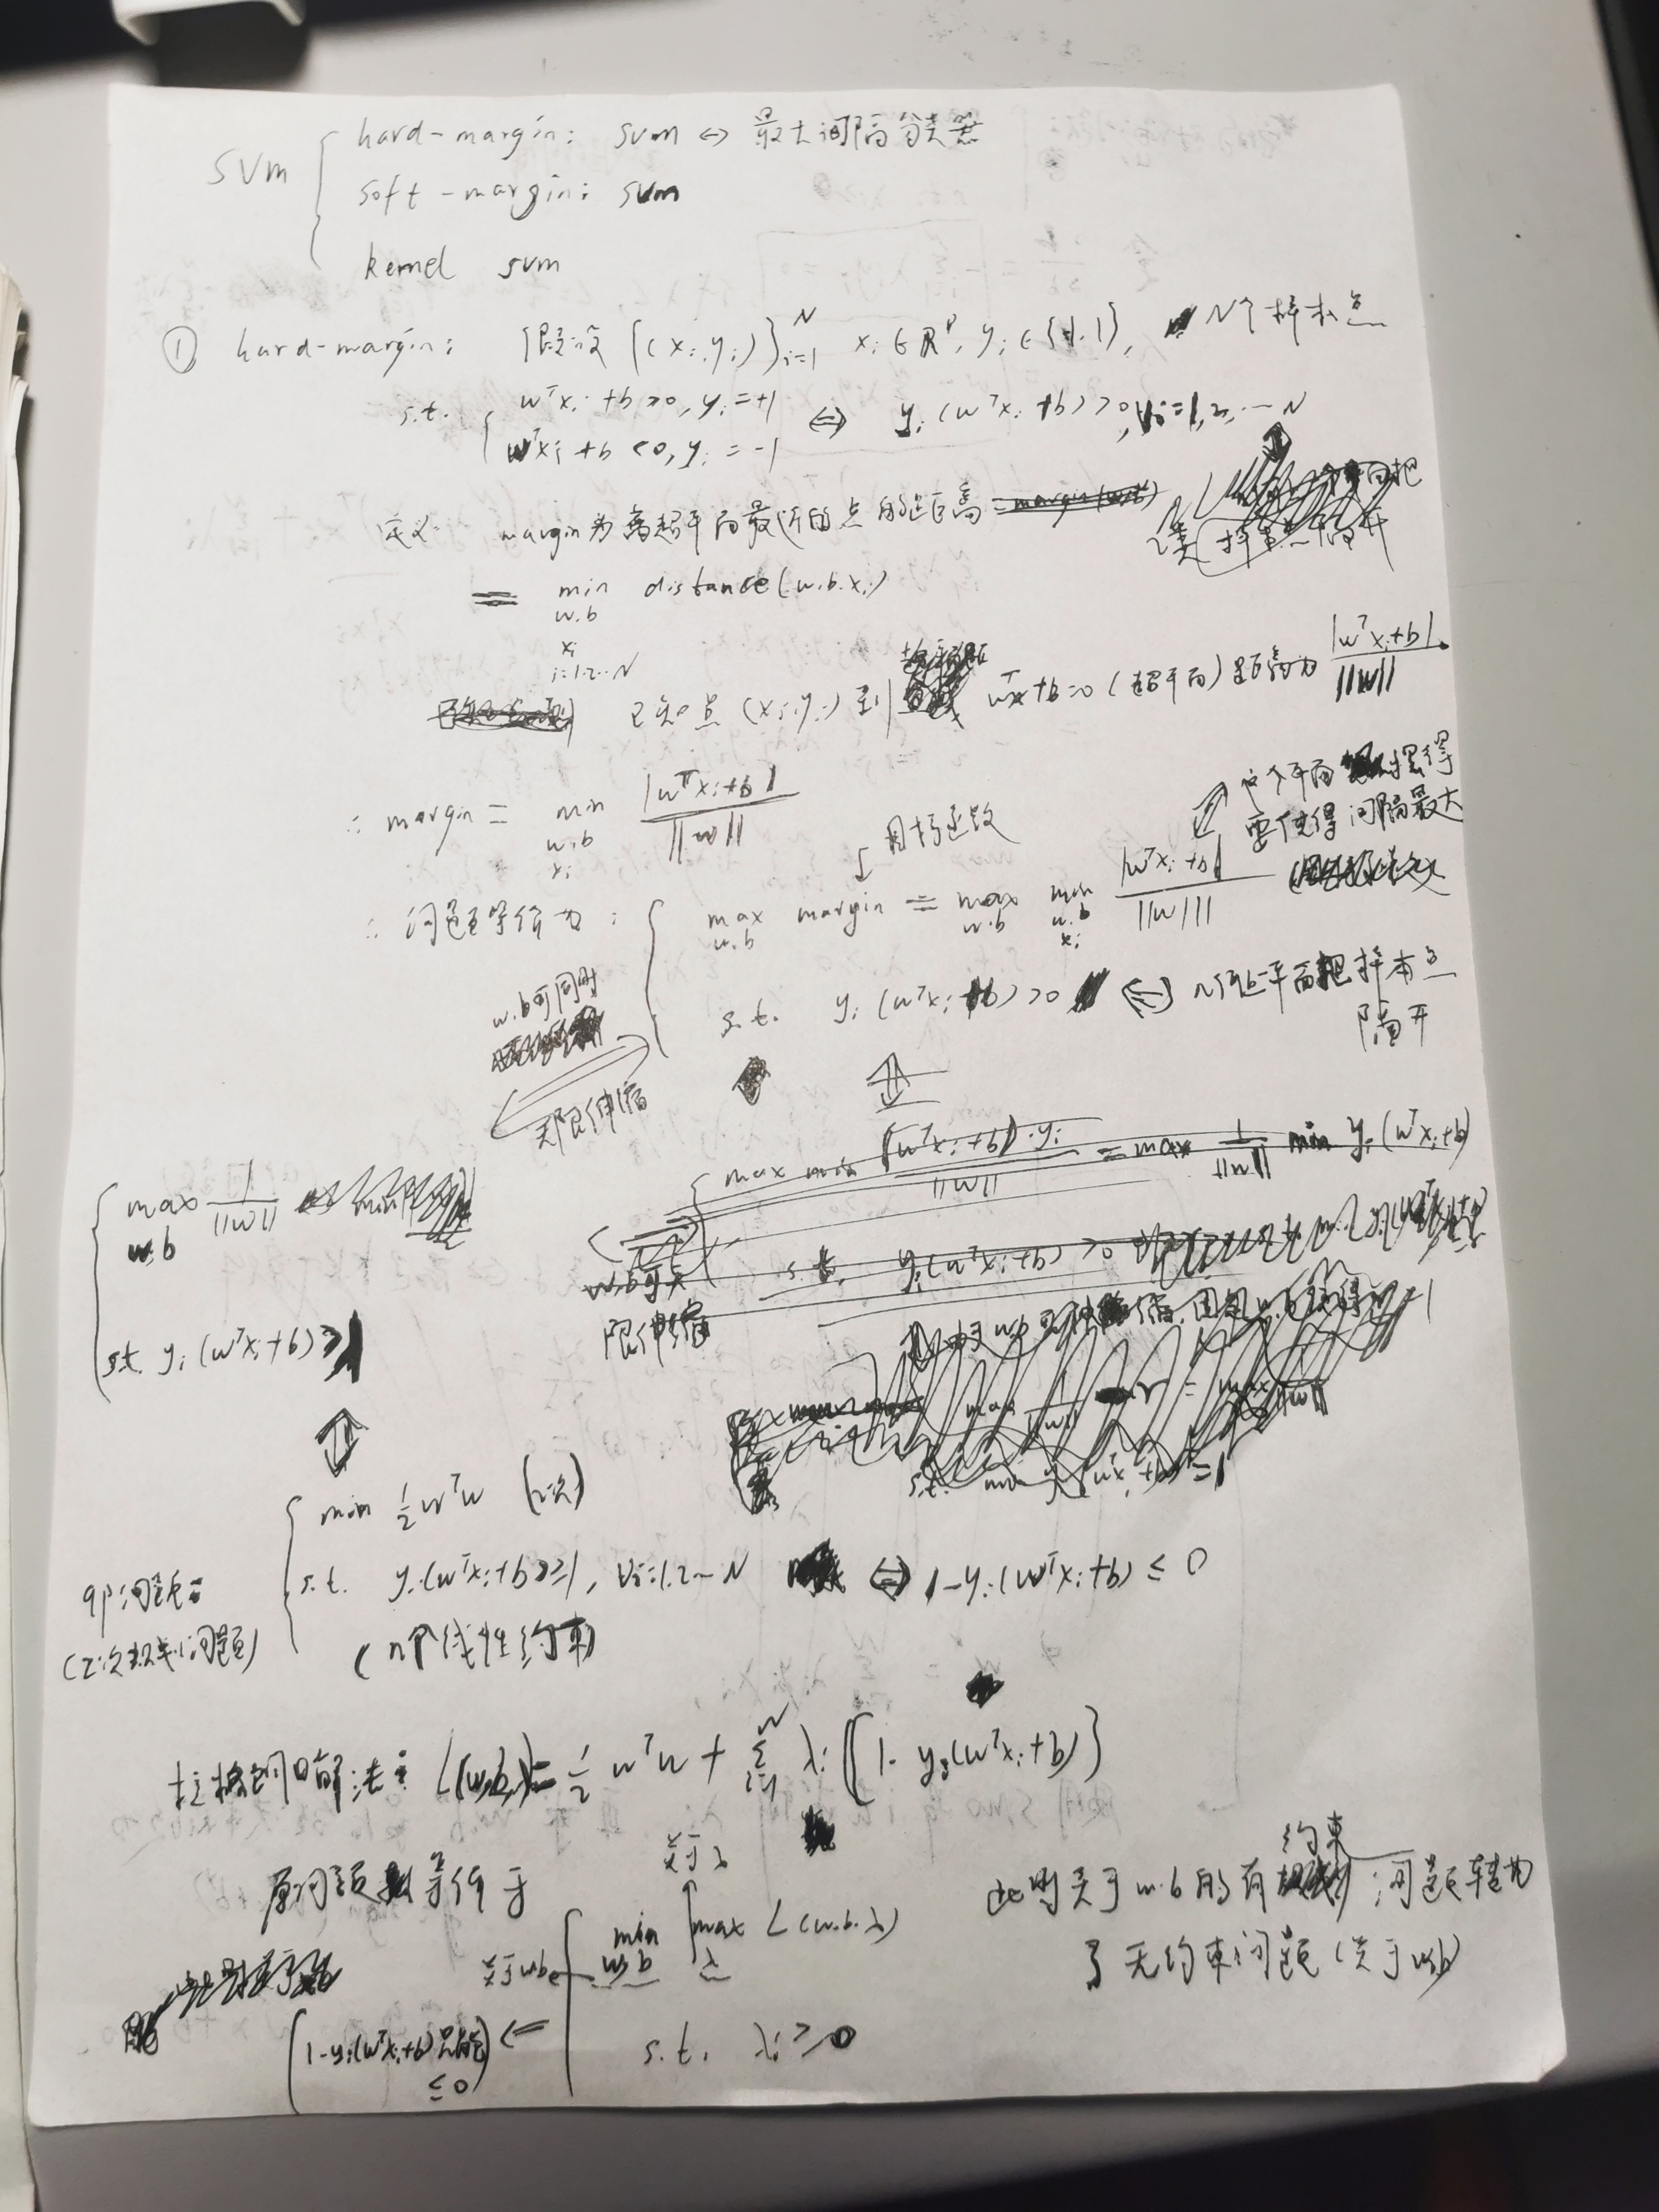 SVM { hard-margin: SVM ⇔ 最大间隔分类器
soft-margin: SVM
kernel SVM
① hard-margin: 假设 {(xi, yi)}_{i=1}^N xi∈R^p, yi∈{-1, 1}, N个样本点
s.t. { w^T xi + b > 0, yi = +1
w^T xi + b < 0, yi = -1 ⇔ yi(w^T xi + b) > 0, ∀i = 1, 2, … N
定义: margin为离超平面最近的点的距离
= min_{w,b, xi, i=1,2…N} distance(w, b, xi)
已知点 (xi, yi) 到 w^T x + b = 0 (超平面) 距离为 |w^T xi + b| / ||w||
∴ margin = min_{w,b, xi} |w^T xi + b| / ||w||
这个平面 摆得
要使得间隔最大
目标函数
∴ 问题等价为: { max_{w,b} margin = max_{w,b} min_{w,b, xi} |w^T xi + b| / ||w||
s.t. yi(w^T xi + b) > 0 ⇔ 平面把样本点
隔开
w,b可同时
无限伸缩
max min (w^T xi + b)·yi / ||w|| = max 1/||w|| min yi(w^T xi + b)
s.t. yi(w^T xi + b) > 0
w,b可无
限伸缩
{ max_{w,b} 1/||w||
s.t. yi(w^T xi + b) ≥ 1
qp问题:
(二次规划问题)
{ min ½ w^T w (二次)
s.t. yi(w^T xi + b) ≥ 1, ∀i = 1,2…N ⇔ 1 - yi(w^T xi + b) ≤ 0
(n个线性约束)
拉格朗日解法: L(w,b,λ) = ½ w^T w + Σ_{i=1}^N λi [1 - yi(w^T xi + b)]
原问题 等价于
关于λ
关于w,b { min_{w,b} max_λ L(w, b, λ)
s.t. λi ≥ 0
(1 - yi(w^T xi + b) 只能 ≤ 0) ⇐
此时关于w,b的有约束问题转为
了无约束问题 (关于w,b)